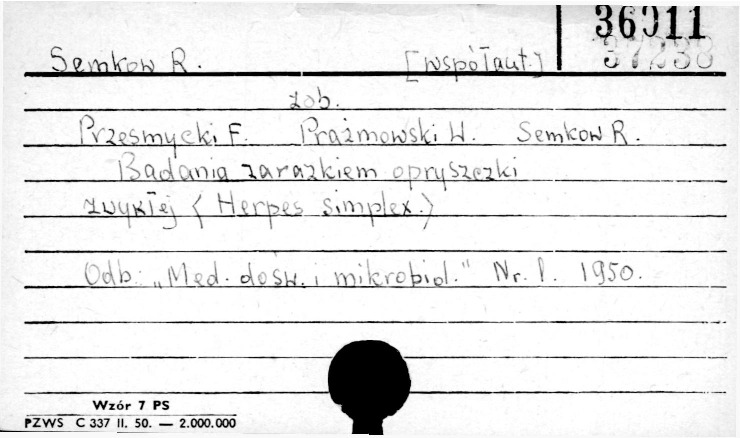 36011
37238
Semkow R. [współaut.]
zob.
Przesmycki F. Prażmowski W. Semkow R.
Badania zarazkiem opryszczki
zwykłej (Herpes simplex.)
Odb: „Med. dośw. i mikrobiol." Nr. 1. 1950.
Wzór 7 PS
PZWS C 337 II. 50. — 2.000.000